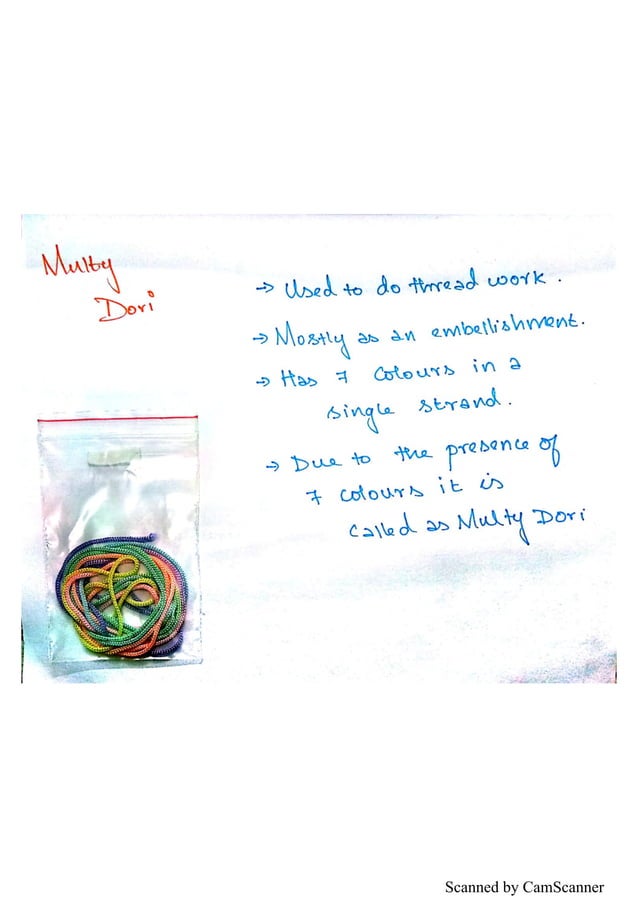 Multy
Dori
→ Used to do thread work.
→ Mostly as an embellishment.
→ Has 7 colours in a
single strand.
→ Due to the presence of
7 colours it is
called as Multy Dori
Scanned by CamScanner